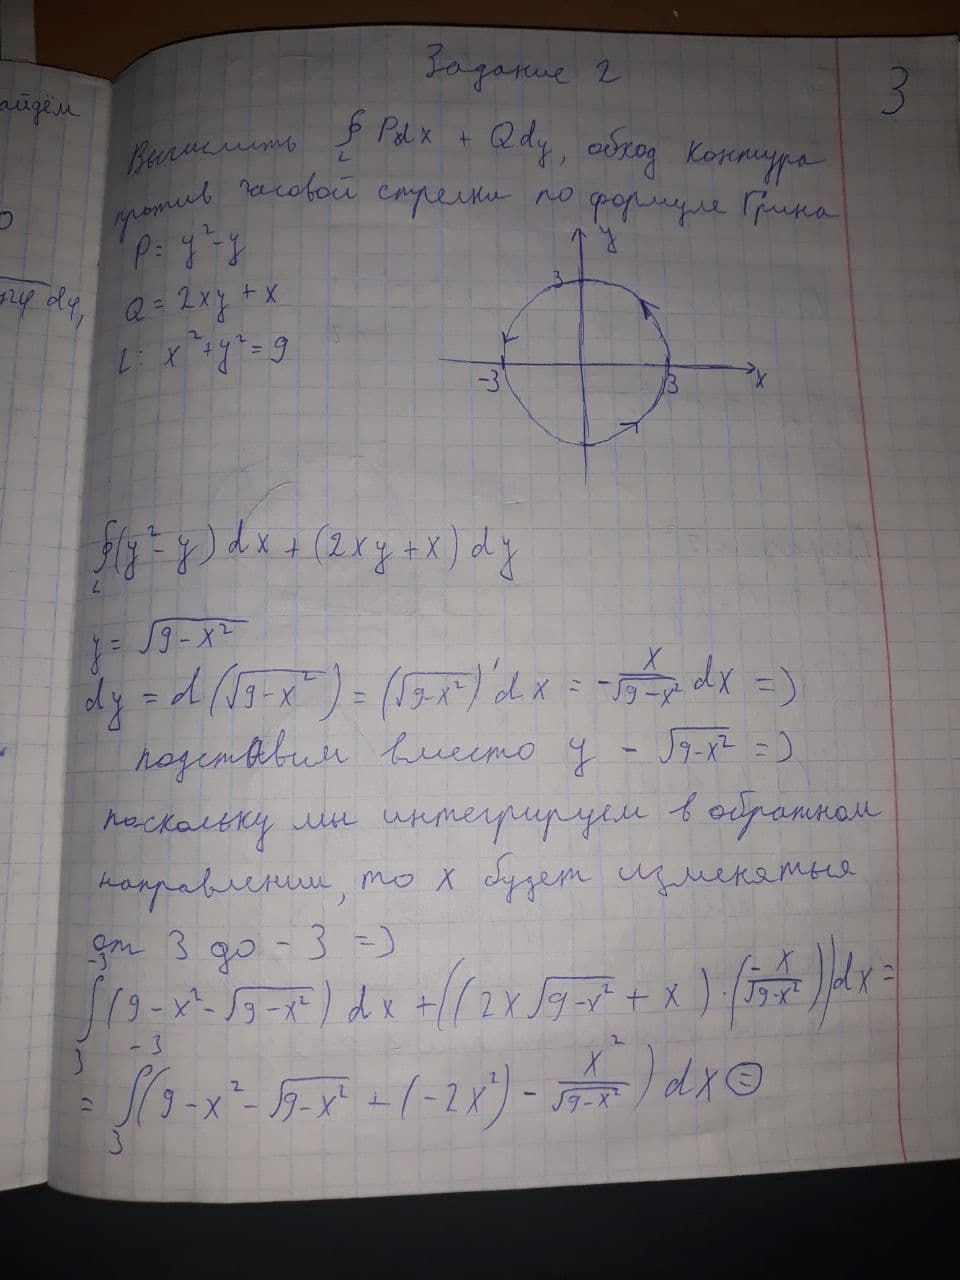 айдём
Задание 2
3
Вычислить ∮_L Pdx + Qdy, обход контура
против часовой стрелки по формуле Грина
P = y² - y
Q = 2xy + x
L: x² + y² = 9
y
3
-3
3
x
∮_L (y² - y) dx + (2xy + x) dy
y = √(9 - x²)
dy = d(√(9 - x²)) = (√(9 - x²))' dx = - x/√(9 - x²) dx =>
подставим вместо y - √(9 - x²) =>
поскольку мы интегрируем в обратном
направлении, то x будет изменяться
от 3 до -3 =>
∫_3^{-3} (9 - x² - √(9 - x²)) dx + ((2x√(9 - x²) + x) · (- x/√(9 - x²))) dx =
= ∫_3^{-3} (9 - x² - √(9 - x²) + (-2x²) - x²/√(9 - x²)) dx ⊜